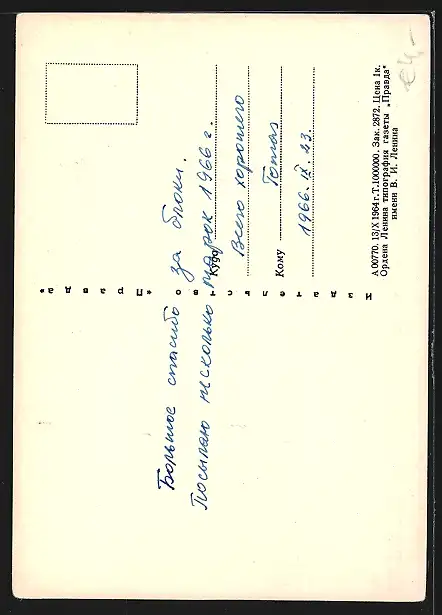 Большое спасибо за блоки.
Посылаю несколько марок 1966 г.
Куда
Всего хорошего
Кому
Томас
1966. IX. 23.
Издательство «Правда»
А 00770. 13/X 1964 г. Т. 1000000. Зак. 2872. Цена 1к.
Ордена Ленина типография газеты „Правда“
имени В. И. Ленина
€4,-